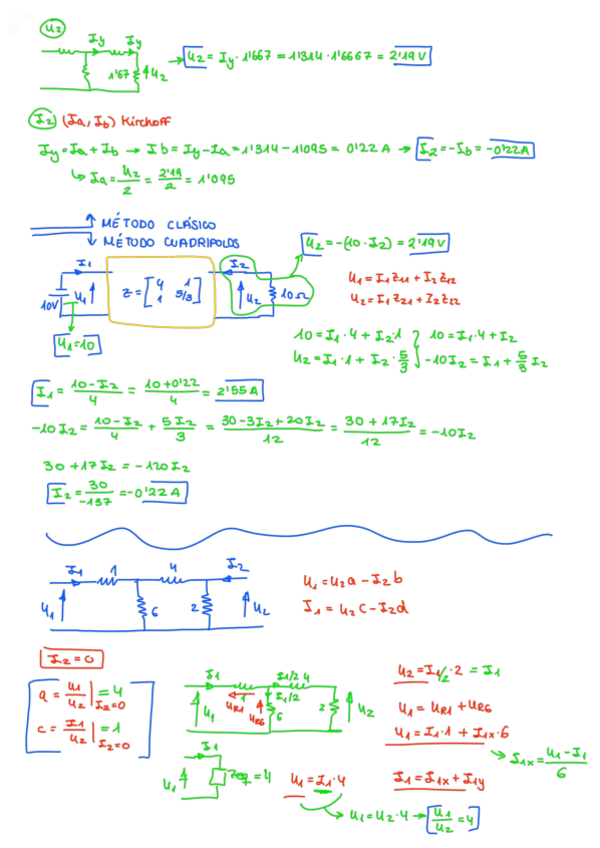 u2
Iy Iy
1'67 u2
u2 = Iy · 1'667 = 1'314 · 1'6667 = 2'19 V
I2 (Ia, Ib) Kirchoff
Iy = Ia + Ib → Ib = Iy - Ia = 1'314 - 1'095 = 0'22 A → I2 = -Ib = -0'22A
↳ Ia = u2/2 = 2'19/2 = 1'095
↑ MÉTODO CLÁSICO
↓ MÉTODO CUADRIPOLOS
u2 = -(10 · I2) = 2'19 V
I1 I2
10V u1 z = [4 1; 1 5/3] u2 10Ω
u1 = 10
u1 = I1 z11 + I2 z12
u2 = I1 z21 + I2 z22
10 = I1 · 4 + I2 · 1 } 10 = I1 · 4 + I2
u2 = I1 · 1 + I2 · 5/3 } -10I2 = I1 + 5/3 I2
I1 = (10 - I2)/4 = (10 + 0'22)/4 = 2'55 A
-10 I2 = (10 - I2)/4 + 5I2/3 = (30 - 3I2 + 20I2)/12 = (30 + 17I2)/12 = -10I2
30 + 17 I2 = -120I2
I2 = 30/-137 = -0'22 A
I1 1 4 I2
u1 6 2 u2
u1 = u2 a - I2 b
I1 = u2 c - I2 d
I2 = 0
a = u1/u2 | I2=0 = 4
c = I1/u2 | I2=0 = 1
I1 I1/2 4
u1 uR1 uR6 I1/2 6 2 u2
u2 = I1/2 · 2 = I1
u1 = uR1 + uR6
u1 = I1 · 1 + I1x · 6
↳ I1x = (u1 - I1)/6
I1 = I1x + I1y
I1
u1 Zeq = 4
u1 = I1 · 4
u1 = u2 · 4 → u1/u2 = 4